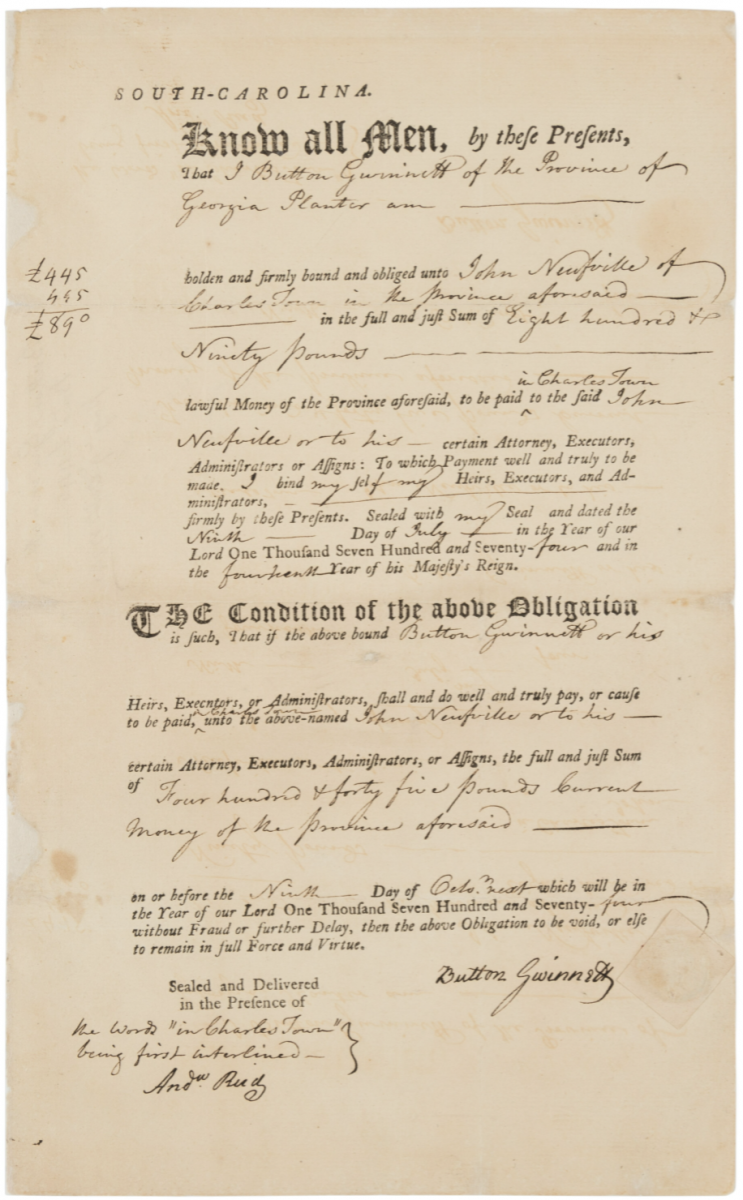 SOUTH-CAROLINA.
Know all Men, by theſe Preſents,
That I Button Gwinnett of the Province of
Georgia Planter am
£445
445
£890
holden and firmly bound and obliged unto John Neufville of
Charles Town in the Province aforesaid
in the full and juſt Sum of Eight hundred &
Ninety pounds
in Charles Town
lawful Money of the Province aforeſaid, to be paid ‸ to the ſaid John
Neufville or to his certain Attorney, Executors,
Adminiſtrators or Aſſigns: To which Payment well and truly to be
made. I bind my self my Heirs, Executors, and Ad-
miniſtrators,
firmly by theſe Preſents. Sealed with my Seal and dated the
Ninth Day of July in the Year of our
Lord One Thouſand Seven Hundred and Seventy-four and in
the fourteenth Year of his Majeſty's Reign.
THE Condition of the above Obligation
is ſuch, That if the above bound Button Gwinnett or his
Heirs, Execntors, or Adminiſtrators, ſhall and do well and truly pay, or cauſe
in Charles Town
to be paid, ‸ unto the above-named John Neufville or to his
certain Attorney, Executors, Adminiſtrators, or Aſſigns, the full and juſt Sum
of Four hundred & forty five pounds Current
Money of the Province aforesaid
on or before the Ninth Day of Octo.r next which will be in
the Year of our Lord One Thouſand Seven Hundred and Seventy-four
without Fraud or further Delay, then the above Obligation to be void, or elſe
to remain in full Force and Virtue.
Button Gwinnett
Sealed and Delivered
in the Preſence of
the Words "in Charles Town"
being first interlined
And.w Reid